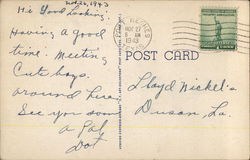 Nov 26, 1943
Hi Good Looking.
Having a good
time. Meeting
Cute boys.
around here.
See you soon
a Pal
Dot
NOV 27
1943
POST CARD
Lloyd Nickel's
Duson, La.